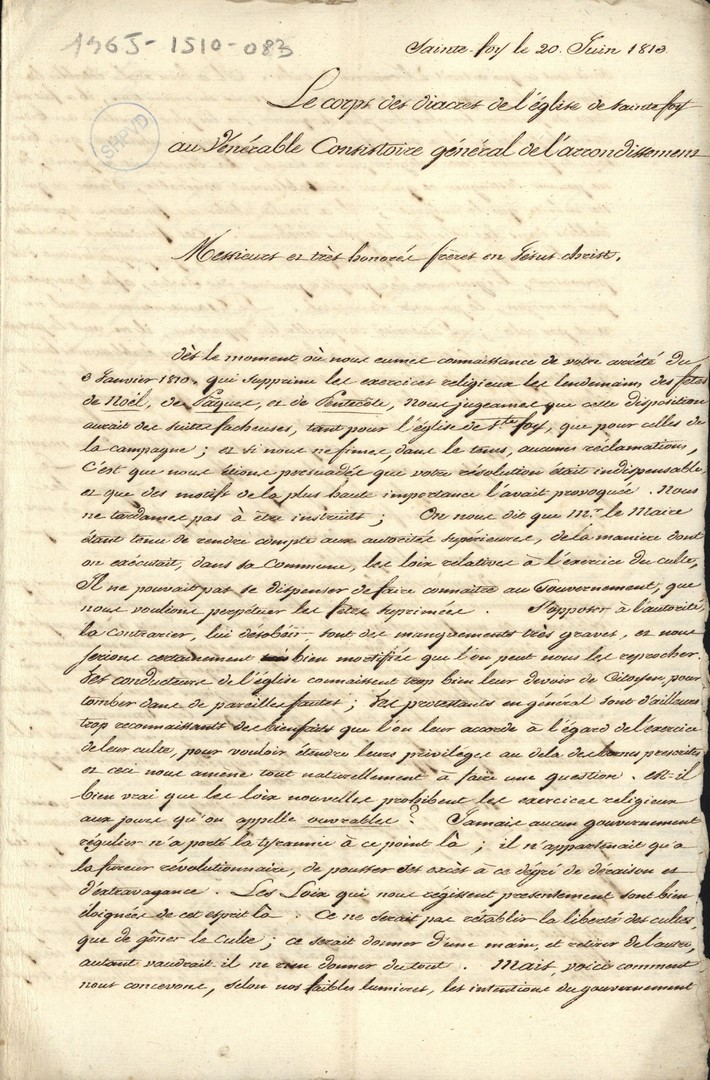 1965-1510-083
Sainte-foy le 20. Juin 1813
SHPVD
Le corps des diacres de l'église de Sainte foy
au Vénérable Consistoire général de l'arrondissement
Messieurs et très honorés frères en Jésus christ,
dès le moment où nous eumes connaissance de votre arrêté du
3 Janvier 1810. qui supprime les exercices religieux les lendemains des fêtes
de Noël, de Paques, et de Pentecôte, nous jugeames que cette disposition
aurait des suites facheuses, tant pour l'église de Ste foy, que pour celles de
la campagne ; et si nous ne fimes, dans le tems, aucunes réclamations,
C'est que nous étions persuadés que votre résolution était indispensable,
et que des motifs de la plus haute importance l'avait provoquée. Nous
ne tardames pas à être instruits ; On nous dit que Mr. le Maire
étant tenu de rendre compte aux autorités supérieures, de la manière dont
on exécutait, dans sa Commune, les loix relatives à l'exercice du culte,
Il ne pouvait pas se dispenser de faire connaitre au Gouvernement, que
nous voulions perpétuer les fêtes suprimées. S'opposer à l'autorité,
la contrarier, lui désobéir sont des manquements très graves, et nous
serions certainement bien mortifiés que l'on peut nous les reprocher.
Les conducteurs de l'église connaissent trop bien leur devoir de Citoyen, pour
tomber dans de pareilles fautes ; Les protestants en général sont d'ailleurs
trop reconnaissants des bienfaits que l'on leur accorde à l'égard de l'exercice
de leur culte, pour vouloir étendre leurs privilèges au delà des bornes prescrites
et ceci nous amène tout naturellement à faire une question. est-il
bien vrai que les loix nouvelles prohibent les exercices religieux
aux jours qu'on appelle ouvrables ? Jamais aucun gouvernement
régulier n'a porté la tyrannie à ce point là ; il n'appartenait qu'a
la fureur révolutionnaire, de pousser ses excès à ce dégré de déraison et
d'extravagance. Les Loix qui nous régissent présentement sont bien
éloignées de cet esprit là. Ce ne serait pas rétablir la liberté des cultes,
que de gêner le culte ; ce serait donner d'une main, et retirer de l'autre,
autant vaudrait-il ne rien donner du tout. Mais, voici comment
nous concevons, selon nos faibles lumières, les intentions du gouvernement